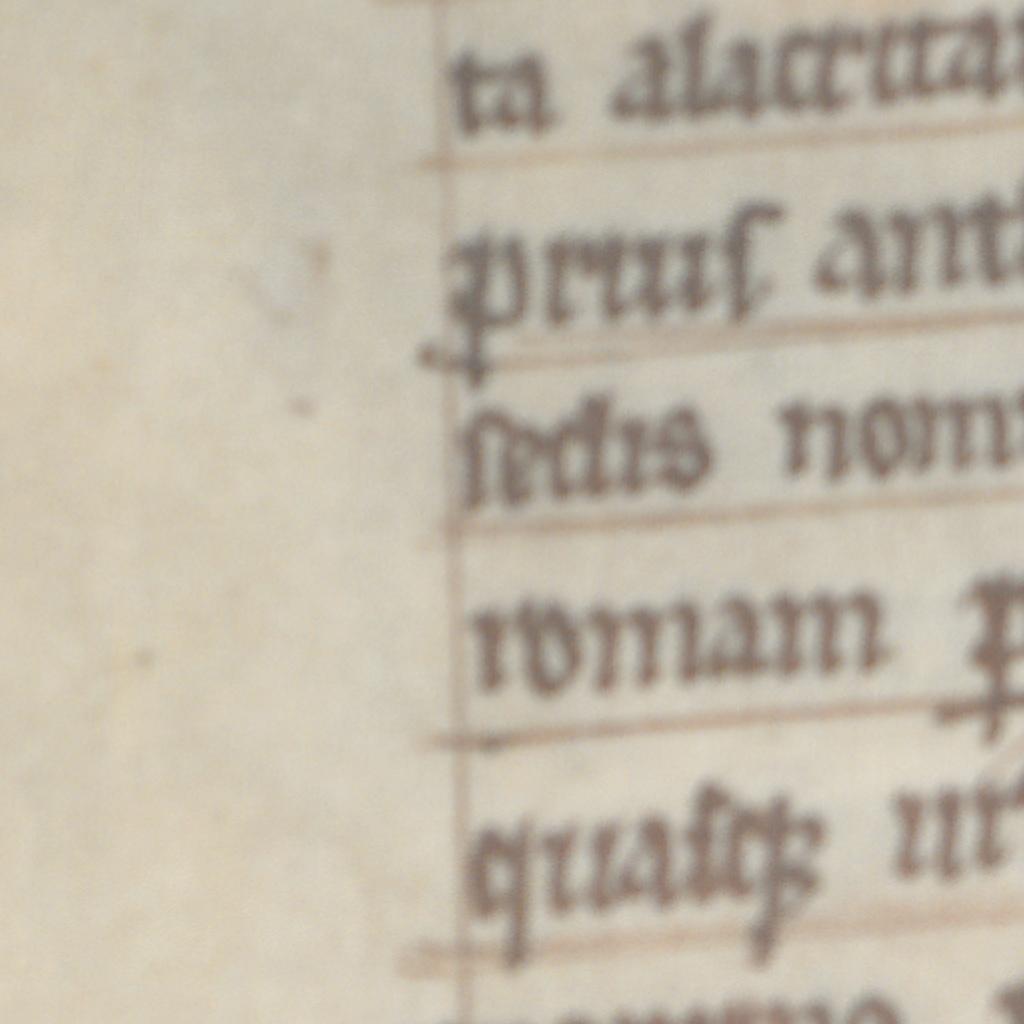 ta alacrita
priuſ ant
ſedis nom
romam
quaſqꝫ